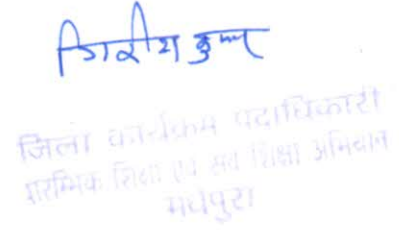 गिरीश कुमार
जिला कार्यक्रम पदाधिकारी
प्रारम्भिक शिक्षा एवं सर्व शिक्षा अभियान
मधेपुरा